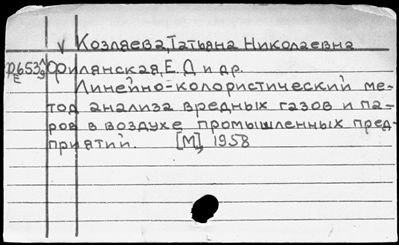 √ Козляева, Татьяна Николаевна
Филянская, Е. Д и др.
Линейно-колористический ме-
тод анализа вредных газов и па-
ров в воздухе промышленных пред-
приятий. [М], 1958